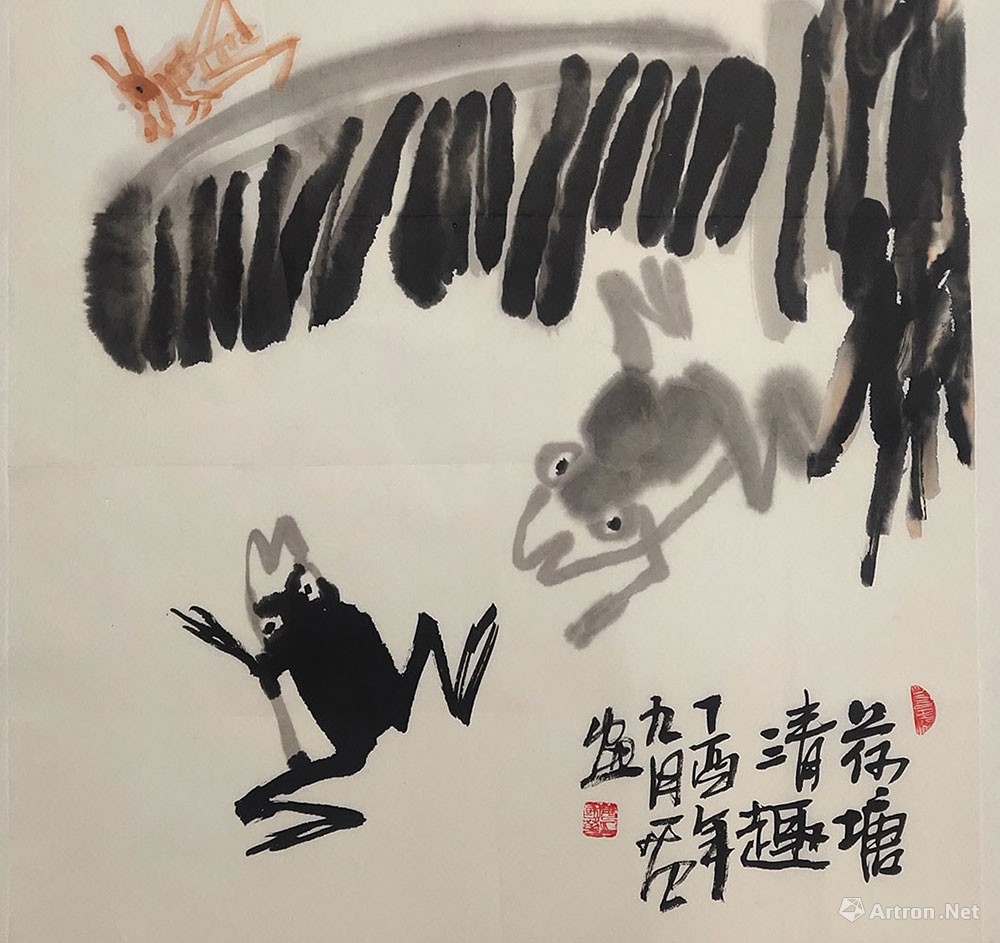 荷塘
清趣
丁酉年
九月
画
Artron.Net